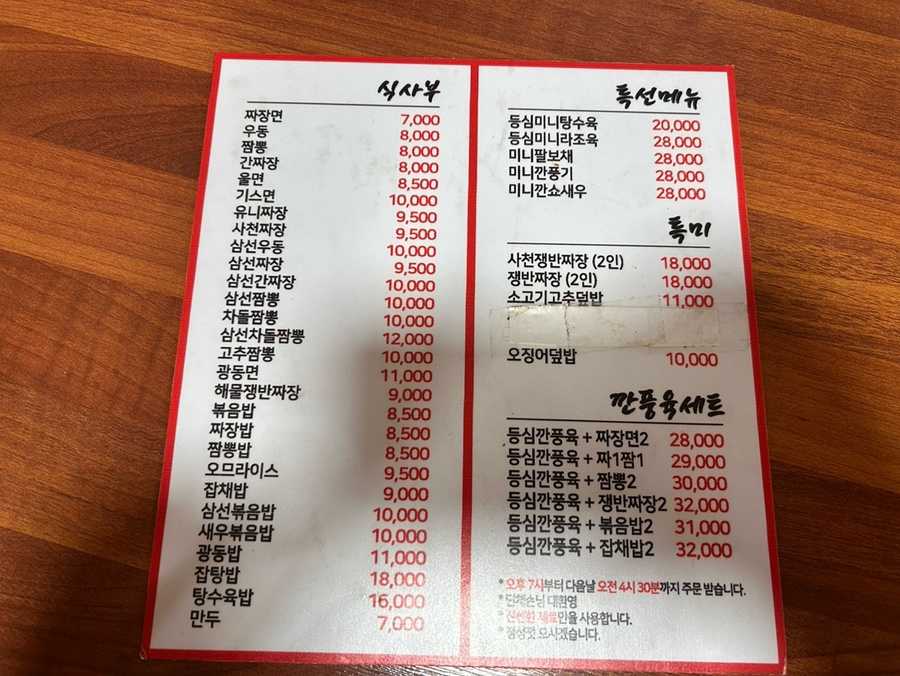 식사부
짜장면 7,000
우동 8,000
짬뽕 8,000
간짜장 8,000
울면 8,500
기스면 10,000
유니짜장 9,500
사천짜장 9,500
삼선우동 10,000
삼선짜장 9,500
삼선간짜장 10,000
삼선짬뽕 10,000
차돌짬뽕 10,000
삼선차돌짬뽕 12,000
고추짬뽕 10,000
광동면 11,000
해물쟁반짜장 9,000
볶음밥 8,500
짜장밥 8,500
짬뽕밥 8,500
오므라이스 9,500
잡채밥 9,000
삼선볶음밥 10,000
새우볶음밥 10,000
광동밥 11,000
잡탕밥 18,000
탕수육밥 16,000
만두 7,000
특선메뉴
등심미니탕수육 20,000
등심미니라조육 28,000
미니팔보채 28,000
미니깐풍기 28,000
미니깐쇼새우 28,000
특미
사천쟁반짜장 (2인) 18,000
쟁반짜장 (2인) 18,000
소고기고추덮밥 11,000
오징어덮밥 10,000
깐풍육세트
등심깐풍육 + 짜장면2 28,000
등심깐풍육 + 짜1짬1 29,000
등심깐풍육 + 짬뽕2 30,000
등심깐풍육 + 쟁반짜장2 32,000
등심깐풍육 + 볶음밥2 31,000
등심깐풍육 + 잡채밥2 32,000
* 오후 7시부터 다음날 오전 4시 30분까지 주문 받습니다.
* 단체손님 대환영
* 신선한 재료만을 사용합니다.
* 정성껏 모시겠습니다.